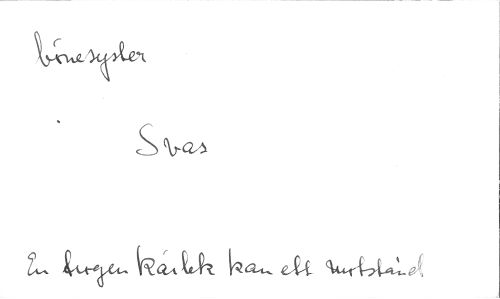 bönesyster
Svas
En trogen kärlek kan ett motstånd